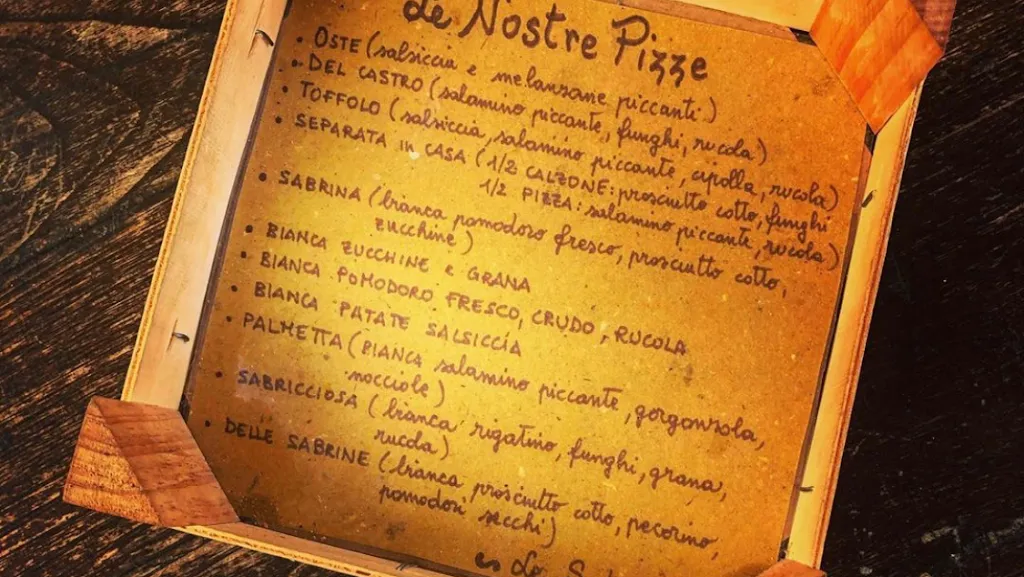 Le Nostre Pizze
• OSTE (salsiccia e melanzane piccanti)
• DEL CASTRO (salamino piccante, funghi, rucola)
• TOFFOLO (salsiccia, salamino piccante, cipolla, rucola)
• SEPARATA IN CASA (1/2 CALZONE: prosciutto cotto, funghi
1/2 PIZZA: salamino piccante, rucola)
• SABRINA (bianca pomodoro fresco, prosciutto cotto,
zucchine)
• BIANCA ZUCCHINE E GRANA
• BIANCA POMODORO FRESCO, CRUDO, RUCOLA
• BIANCA PATATE SALSICCIA
• PALMETTA (BIANCA salamino piccante, gorgonzola,
nocciole)
• SABRICCIOSA (bianca rigatino, funghi, grana,
rucola)
• DELLE SABRINE (bianca prosciutto cotto, pecorino,
pomodori secchi)